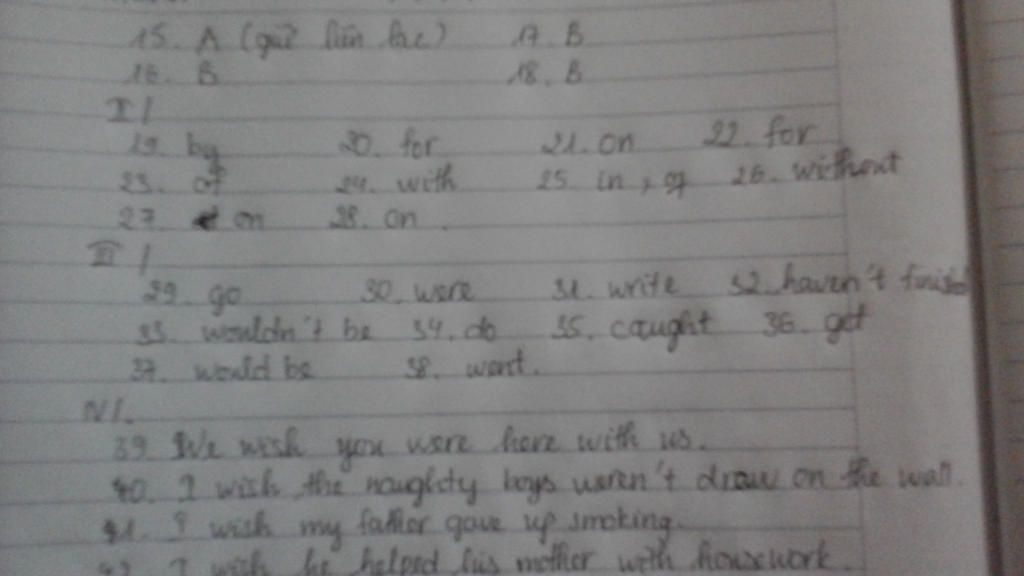 15. A (giữ liên lạc) 17. B
16. B 18. B
II/
19. by 20. for 21. on 22. for
23. of 24. with 25. in, of 26. without
27. on 28. on.
III/
29. go 30. were 31. write 32. haven't finished
33. wouldn't be 34. do 35. caught 36. get
37. would be 38. went.
IV/.
39. We wish you were here with us.
40. I wish the naughty boys weren't draw on the wall.
41. I wish my father gave up smoking.
42. I wish he helped his mother with housework.